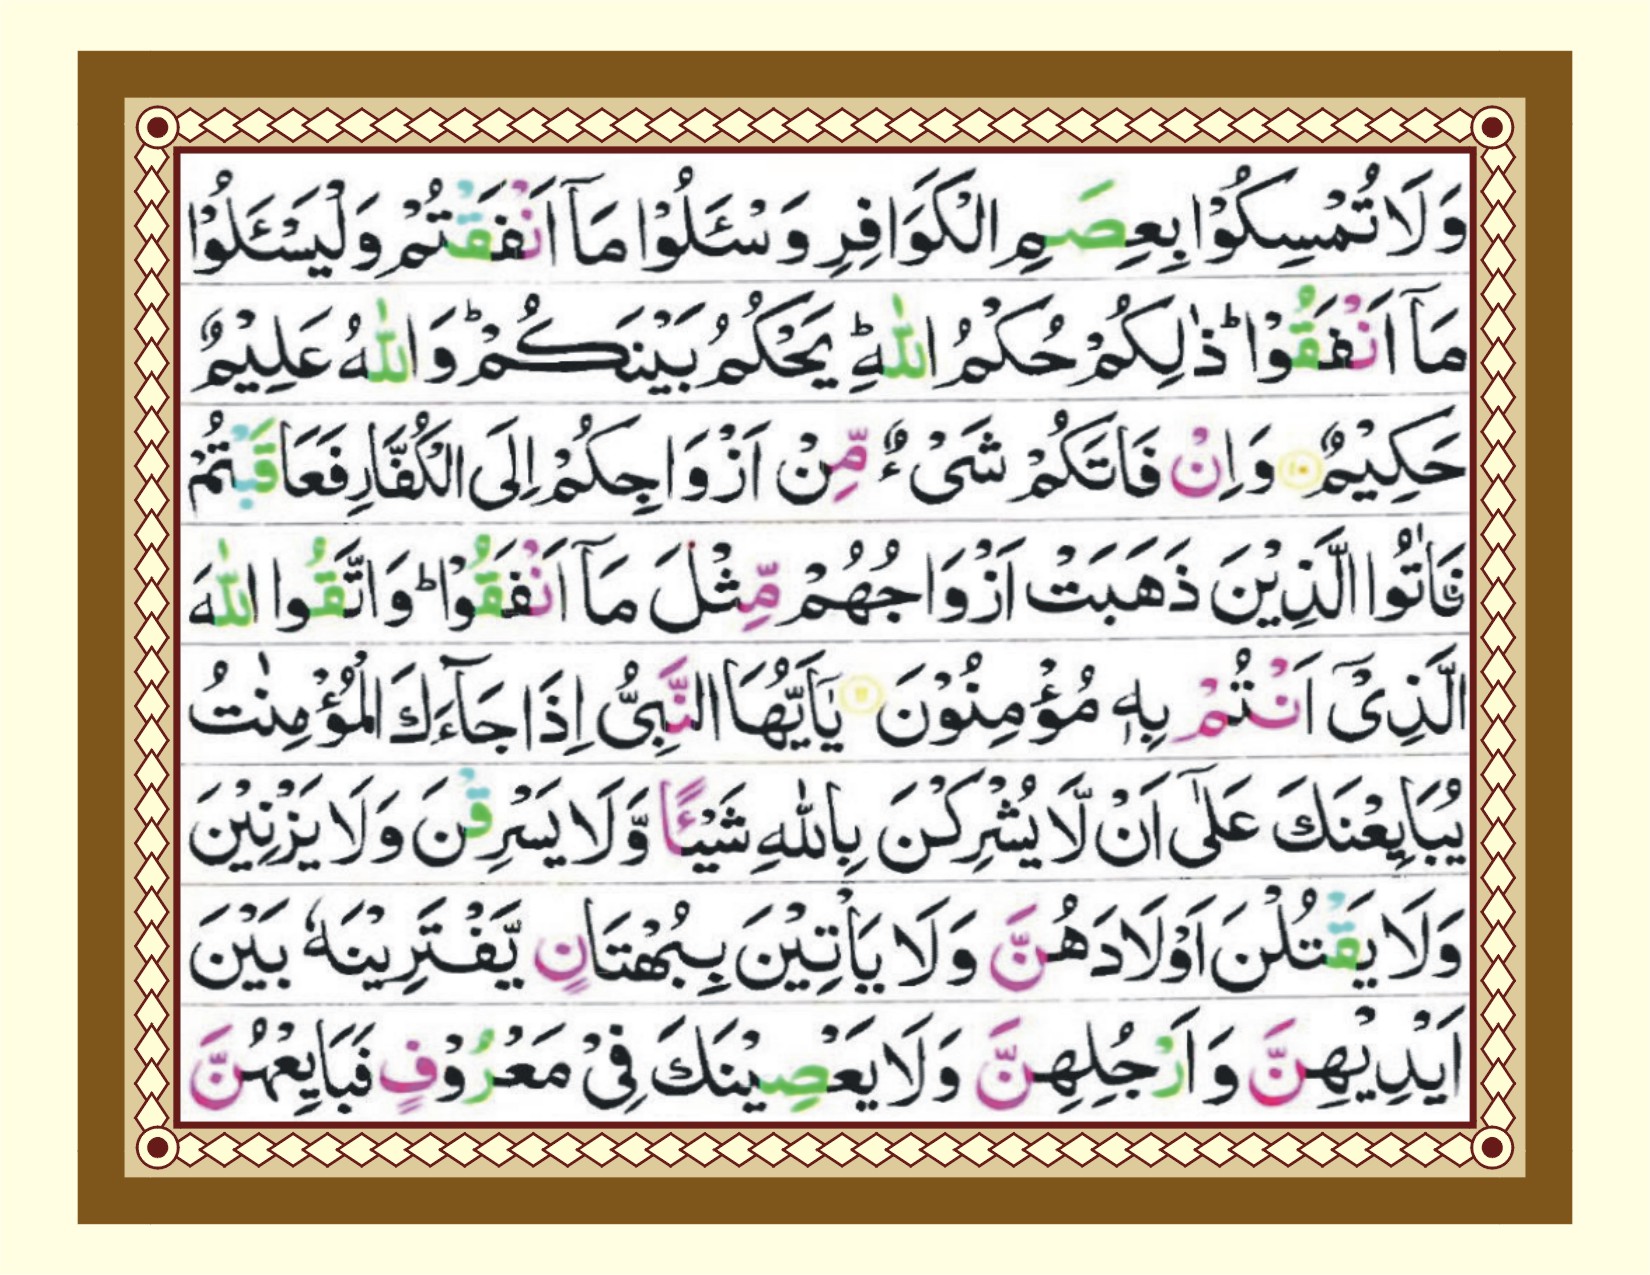 وَلَا تُمْسِكُوْا بِعِصَمِ الْكَوَافِرِ وَسْـَٔلُوْا مَاۤ اَنْفَقْتُمْ وَلْيَسْـَٔلُوْا
مَاۤ اَنْفَقُوْاؕ ذٰلِكُمْ حُكْمُ اللّٰهِؕ يَحْكُمُ بَيْنَكُمْؕ وَاللّٰهُ عَلِيْمٌ
حَكِيْمٌ ۝۱۰ وَاِنْ فَاتَكُمْ شَیْءٌ مِّنْ اَزْوَاجِكُمْ اِلَى الْكُفَّارِ فَعَاقَبْتُمْ
فَاٰتُوا الَّذِيْنَ ذَهَبَتْ اَزْوَاجُهُمْ مِّثْلَ مَاۤ اَنْفَقُوْاؕ وَاتَّقُوا اللّٰهَ
الَّذِیْۤ اَنْتُمْ بِهٖ مُؤْمِنُوْنَ ۝۱۱ يٰۤاَيُّهَا النَّبِیُّ اِذَا جَآءَكَ الْمُؤْمِنٰتُ
يُبَايِعْنَكَ عَلٰۤى اَنْ لَّا يُشْرِكْنَ بِاللّٰهِ شَيْـًٔا وَّلَا يَسْرِقْنَ وَلَا يَزْنِيْنَ
وَلَا يَقْتُلْنَ اَوْلَادَهُنَّ وَلَا يَاْتِيْنَ بِبُهْتَانٍ يَّفْتَرِيْنَهٗ بَيْنَ
اَيْدِيْهِنَّ وَاَرْجُلِهِنَّ وَلَا يَعْصِيْنَكَ فِیْ مَعْرُوْفٍ فَبَايِعْهُنَّ